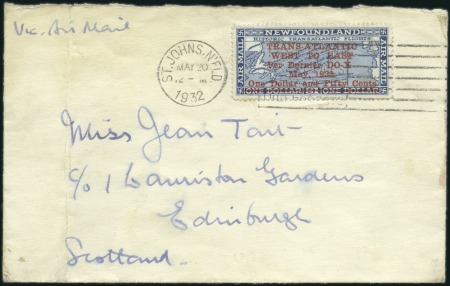 Via Air Mail
ST. JOHN'S, N'F'L'D.
MAY 20
1932
NEWFOUNDLAND
HISTORIC TRANSATLANTIC FLIGHTS
AIR MAIL
AIR MAIL
TRANS-ATLANTIC
WEST TO EAST
Per Dornier DO-X
May, 1932.
One Dollar and Fifty Cents
ONE DOLLAR
ONE DOLLAR
Miss Jean Tait
c/o 1 Lauriston Gardens
Edinburgh
Scotland